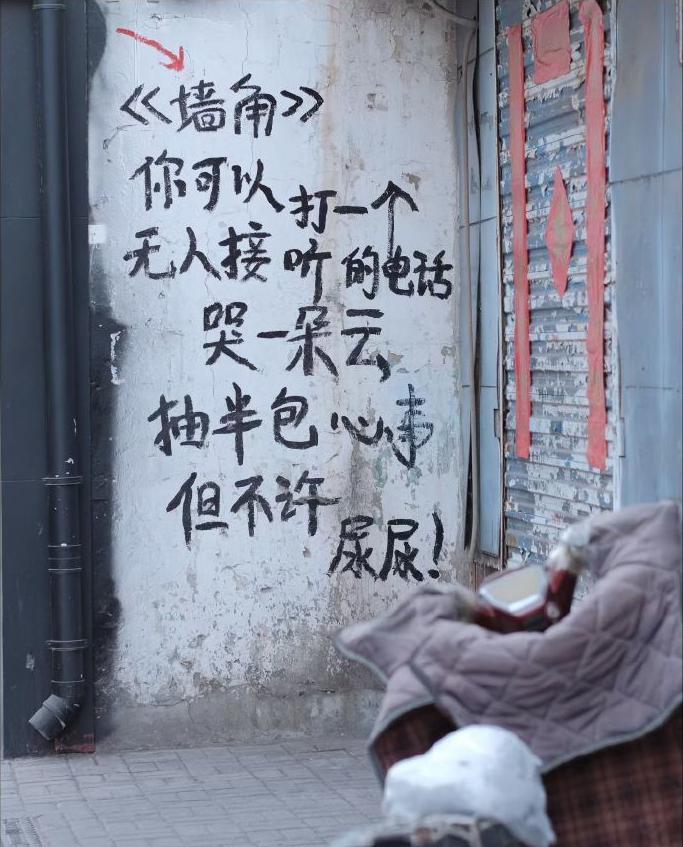 《墙角》
你可以打一个
无人接听的电话
哭一朵云,
抽半包心事
但不许
尿尿!